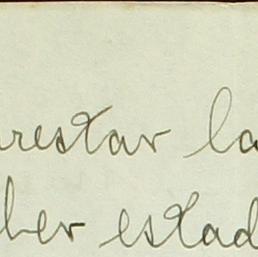 arrestar la
ber estad